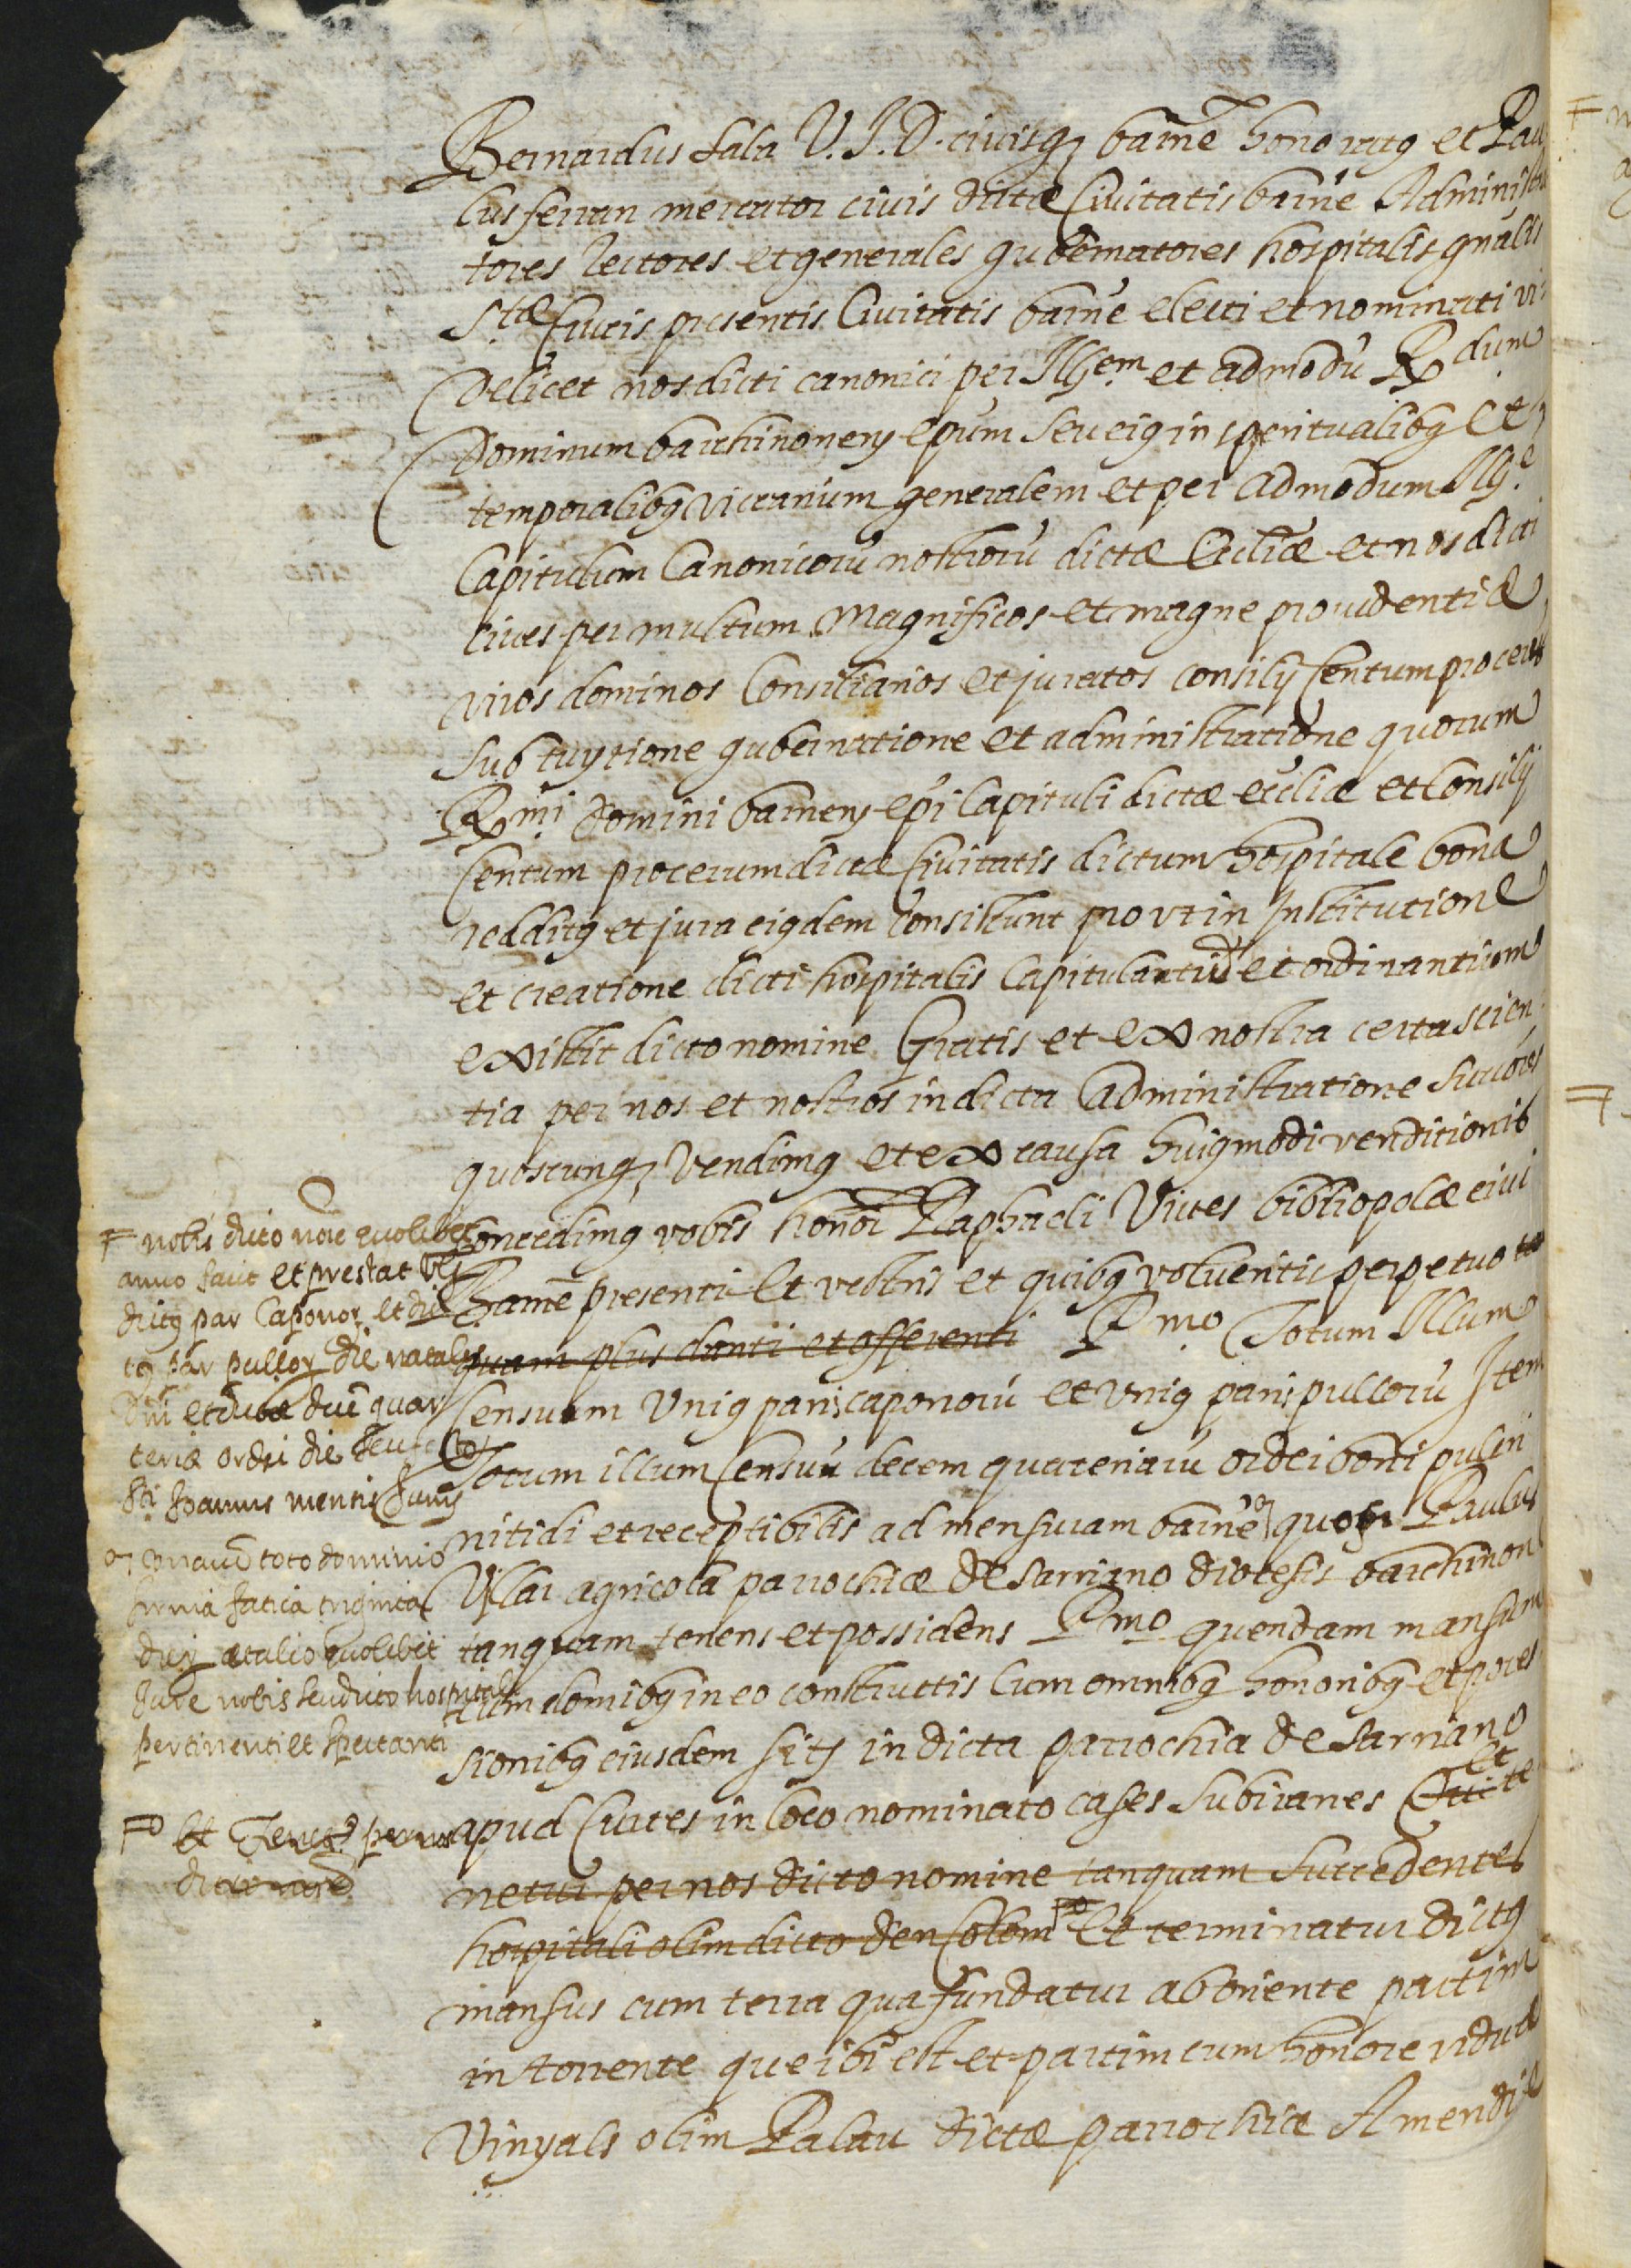 Bernardus sala V.J.D. civisq barne honoratq et Pau
lus ferran mercator civis dictæ Civitatis barne Administra
tores rectores et generales gubernatores hospitalis gnalis
Stæ Crucis presentis Civitatis barne electi et nominati vi
delicet nos dicti canonici per Illem et admodu Rdum
Dominum barchinonens epum seu eiq in spiritualibq et
temporalibq vicarium generalem et per admodum Ille
Capitulum Canonicoru nostroru dictæ Eccliæ et nos dicti
cives per multum Magnificos et magne providentiæ
viros dominos Consiliarios et juratos consilij Centum proceres
sub tuytione gubernatione et administratione quorum
Rmi Domini barnens epi Capituli dictæ eccliæ et Consilij
Centum procerum dictæ Civitatis dictum hospitale bona
redditq et jura eiqdem consistunt prout in Institutione
et creatione dicti hospitalis Capitulatu et ordinantium
existit dicto nomine Gratis et ex nostra certa scien
tia per nos et nostros in dicta administratione succores
quoscunq vendimq et ex causa huiqmodi venditionis
concedimq vobis honor Raphaeli Vives bibliopolæ civi
Barne presenti et vestris et quibq volueritis perpetuo tan
quam plus danti et offerenti Pmo Totum Illum
Censuam Uniq paris caponoru et Uniq paris pulloru Item
Totum illum Censuu decem quarteriaru ordei boni pulcri
nitidi et receptibilis ad mensuram barne quos Paulus
Vilar agricola parrochiæ de Sarriano diocesis barchinon
tanquam tenens et possidens Pmo quendam mansum
cum domibq in eo constructis Cum omnibq honoribq et poces
sionibq eiusdem sitq in dicta parrochia de Sarriano
apud Cirtes in loco nominato cases Subiranes et Et te
netur per nos dicto nomine tanquam Succedentes
hospitali olim dicto den Colom Et terminatur dictq
mansus cum terra qua fundatur ab oriente partim
in torrente que ibi est et partim cum honore viduæ
Vinyals olim Palau dictæ parrochiæ A meridie
nobis dicto noie quolibet
anno facit et prestat vz
dictq par Caponor et dic
tq par pullor die natalis
Dni et dictæ decē quar
teriæ ordei die festo
Sti Joannis mensis Junij
in toto dominio
firma fatica triginta
dier et alio quolibet
Jure nobis seu dicto hospitali
pertinenti et spectanti
Et Tenet per nos
dicto noie